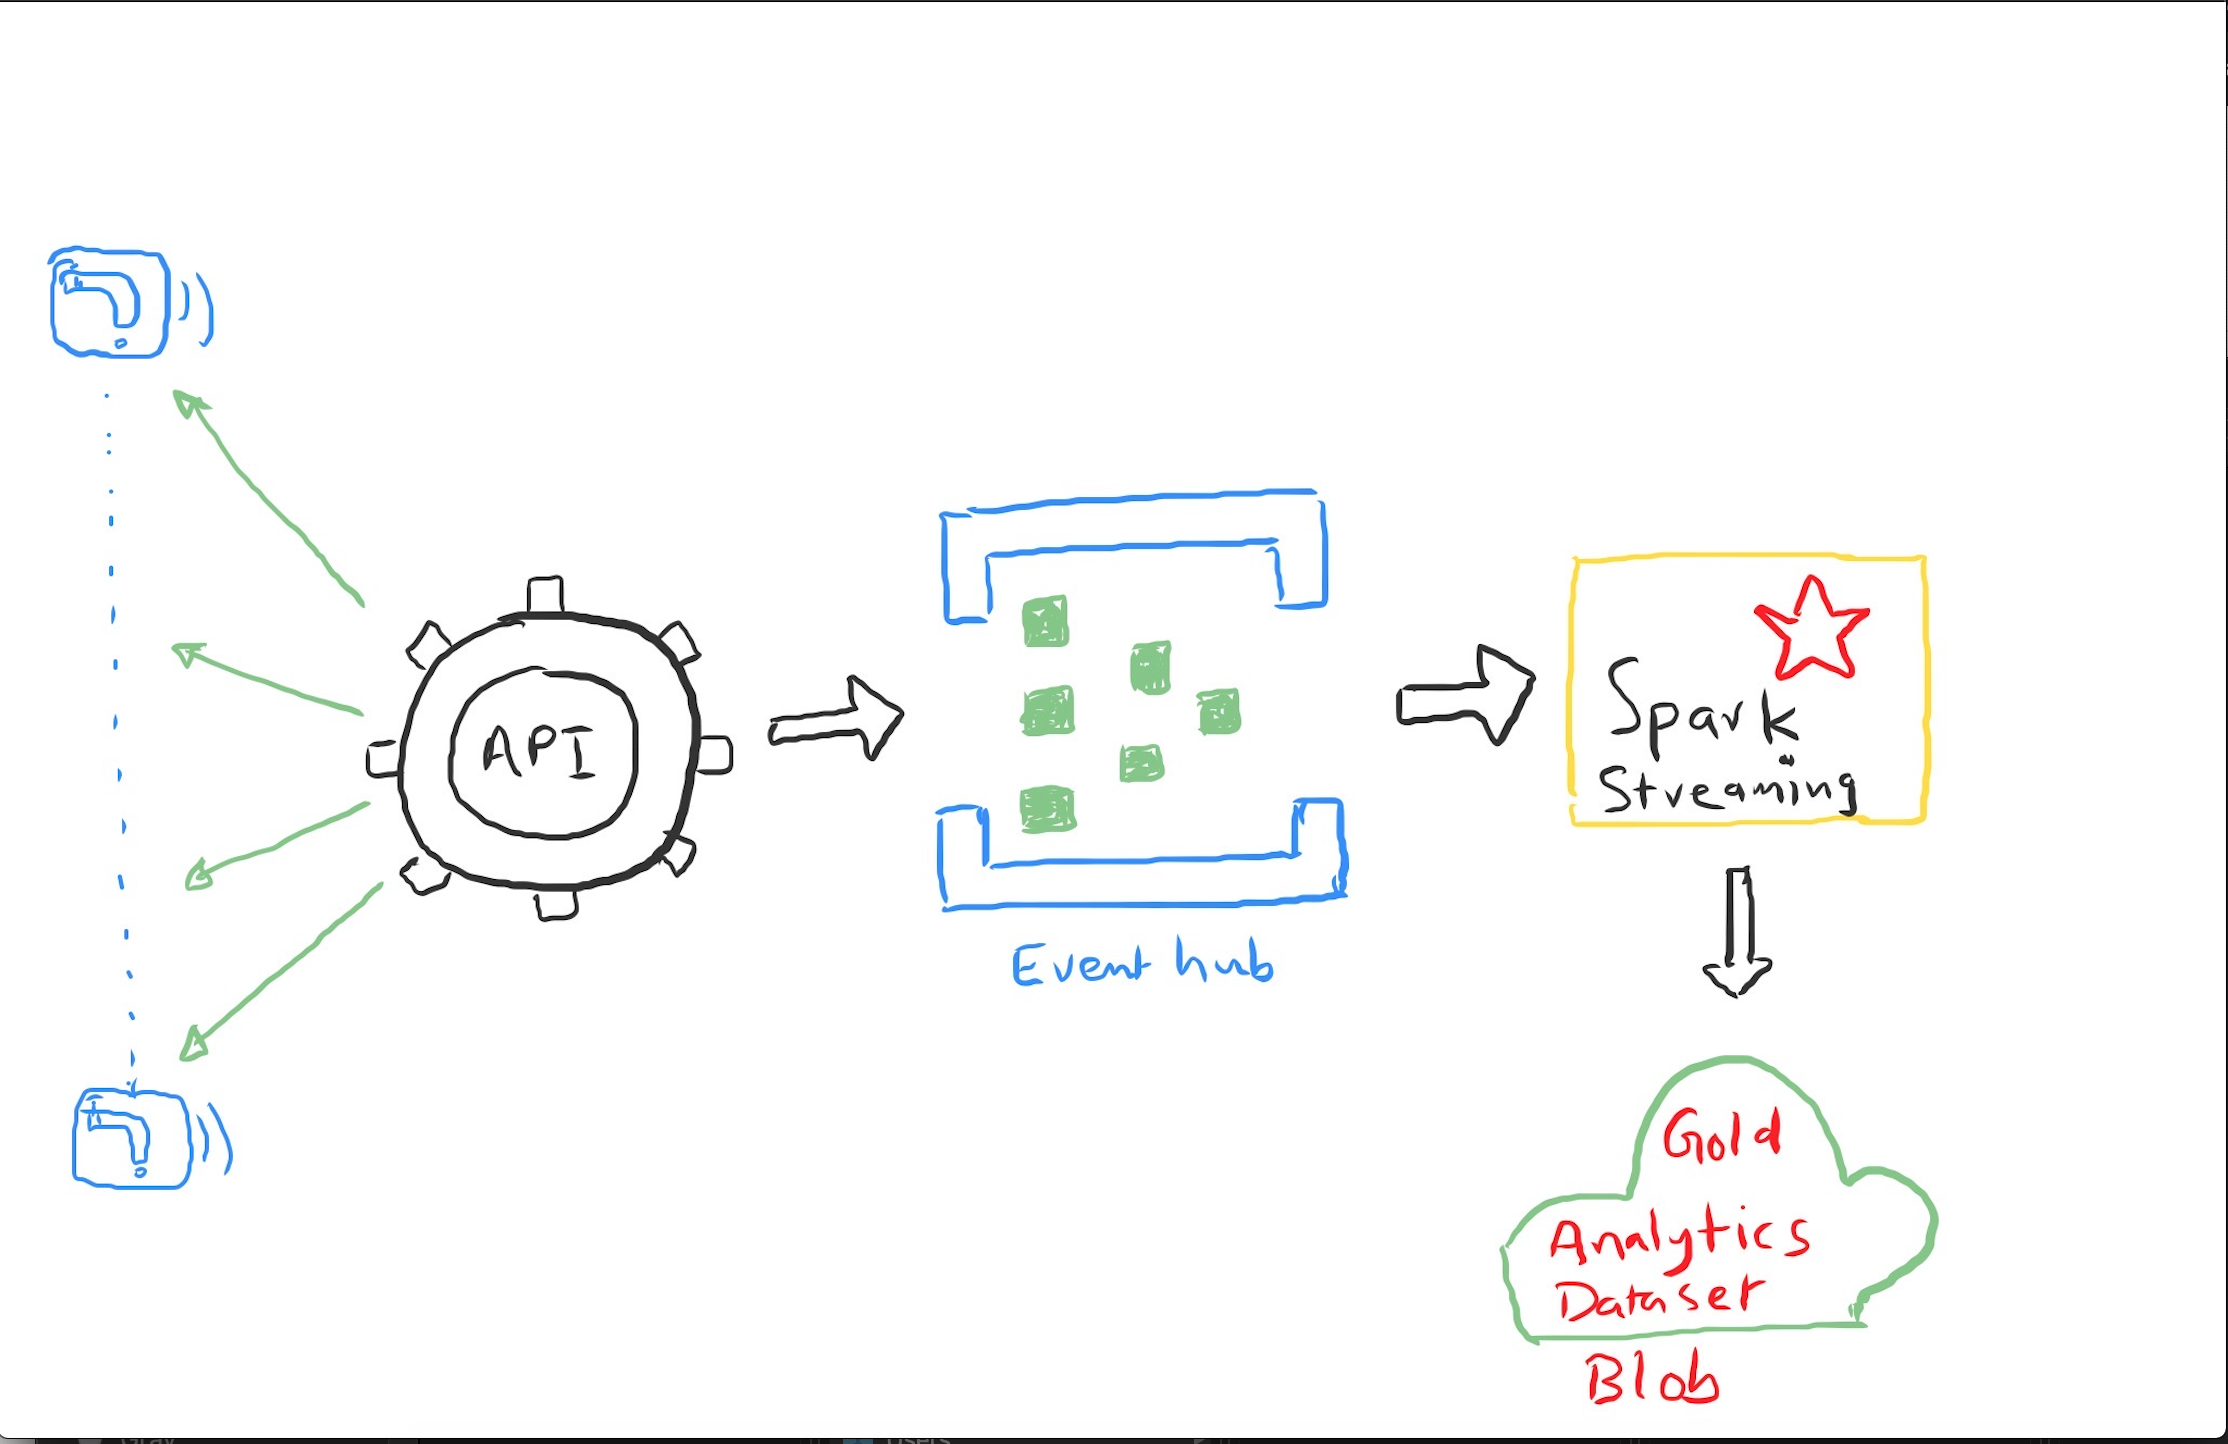 API
Event hub
Spark
Streaming
Gold
Analytics
Dataset
Blob